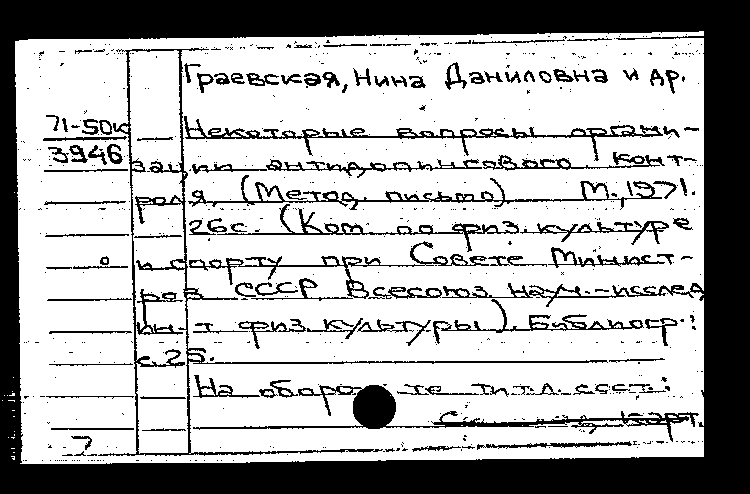 Граевская, Нина Даниловна и др.
71-50к
3946
Некоторые вопросы органи-
зации антидопингового конт-
роля. (Метод. письмо) М., 1971.
26с. (Ком. по физ. культуре
и спорту при Совете Минист-
ров СССР. Всесоюз. науч.-исслед
ин-т физ. культуры). Библиогр.:
с. 25.
На обороте тит. л. сост.:
карт.
7